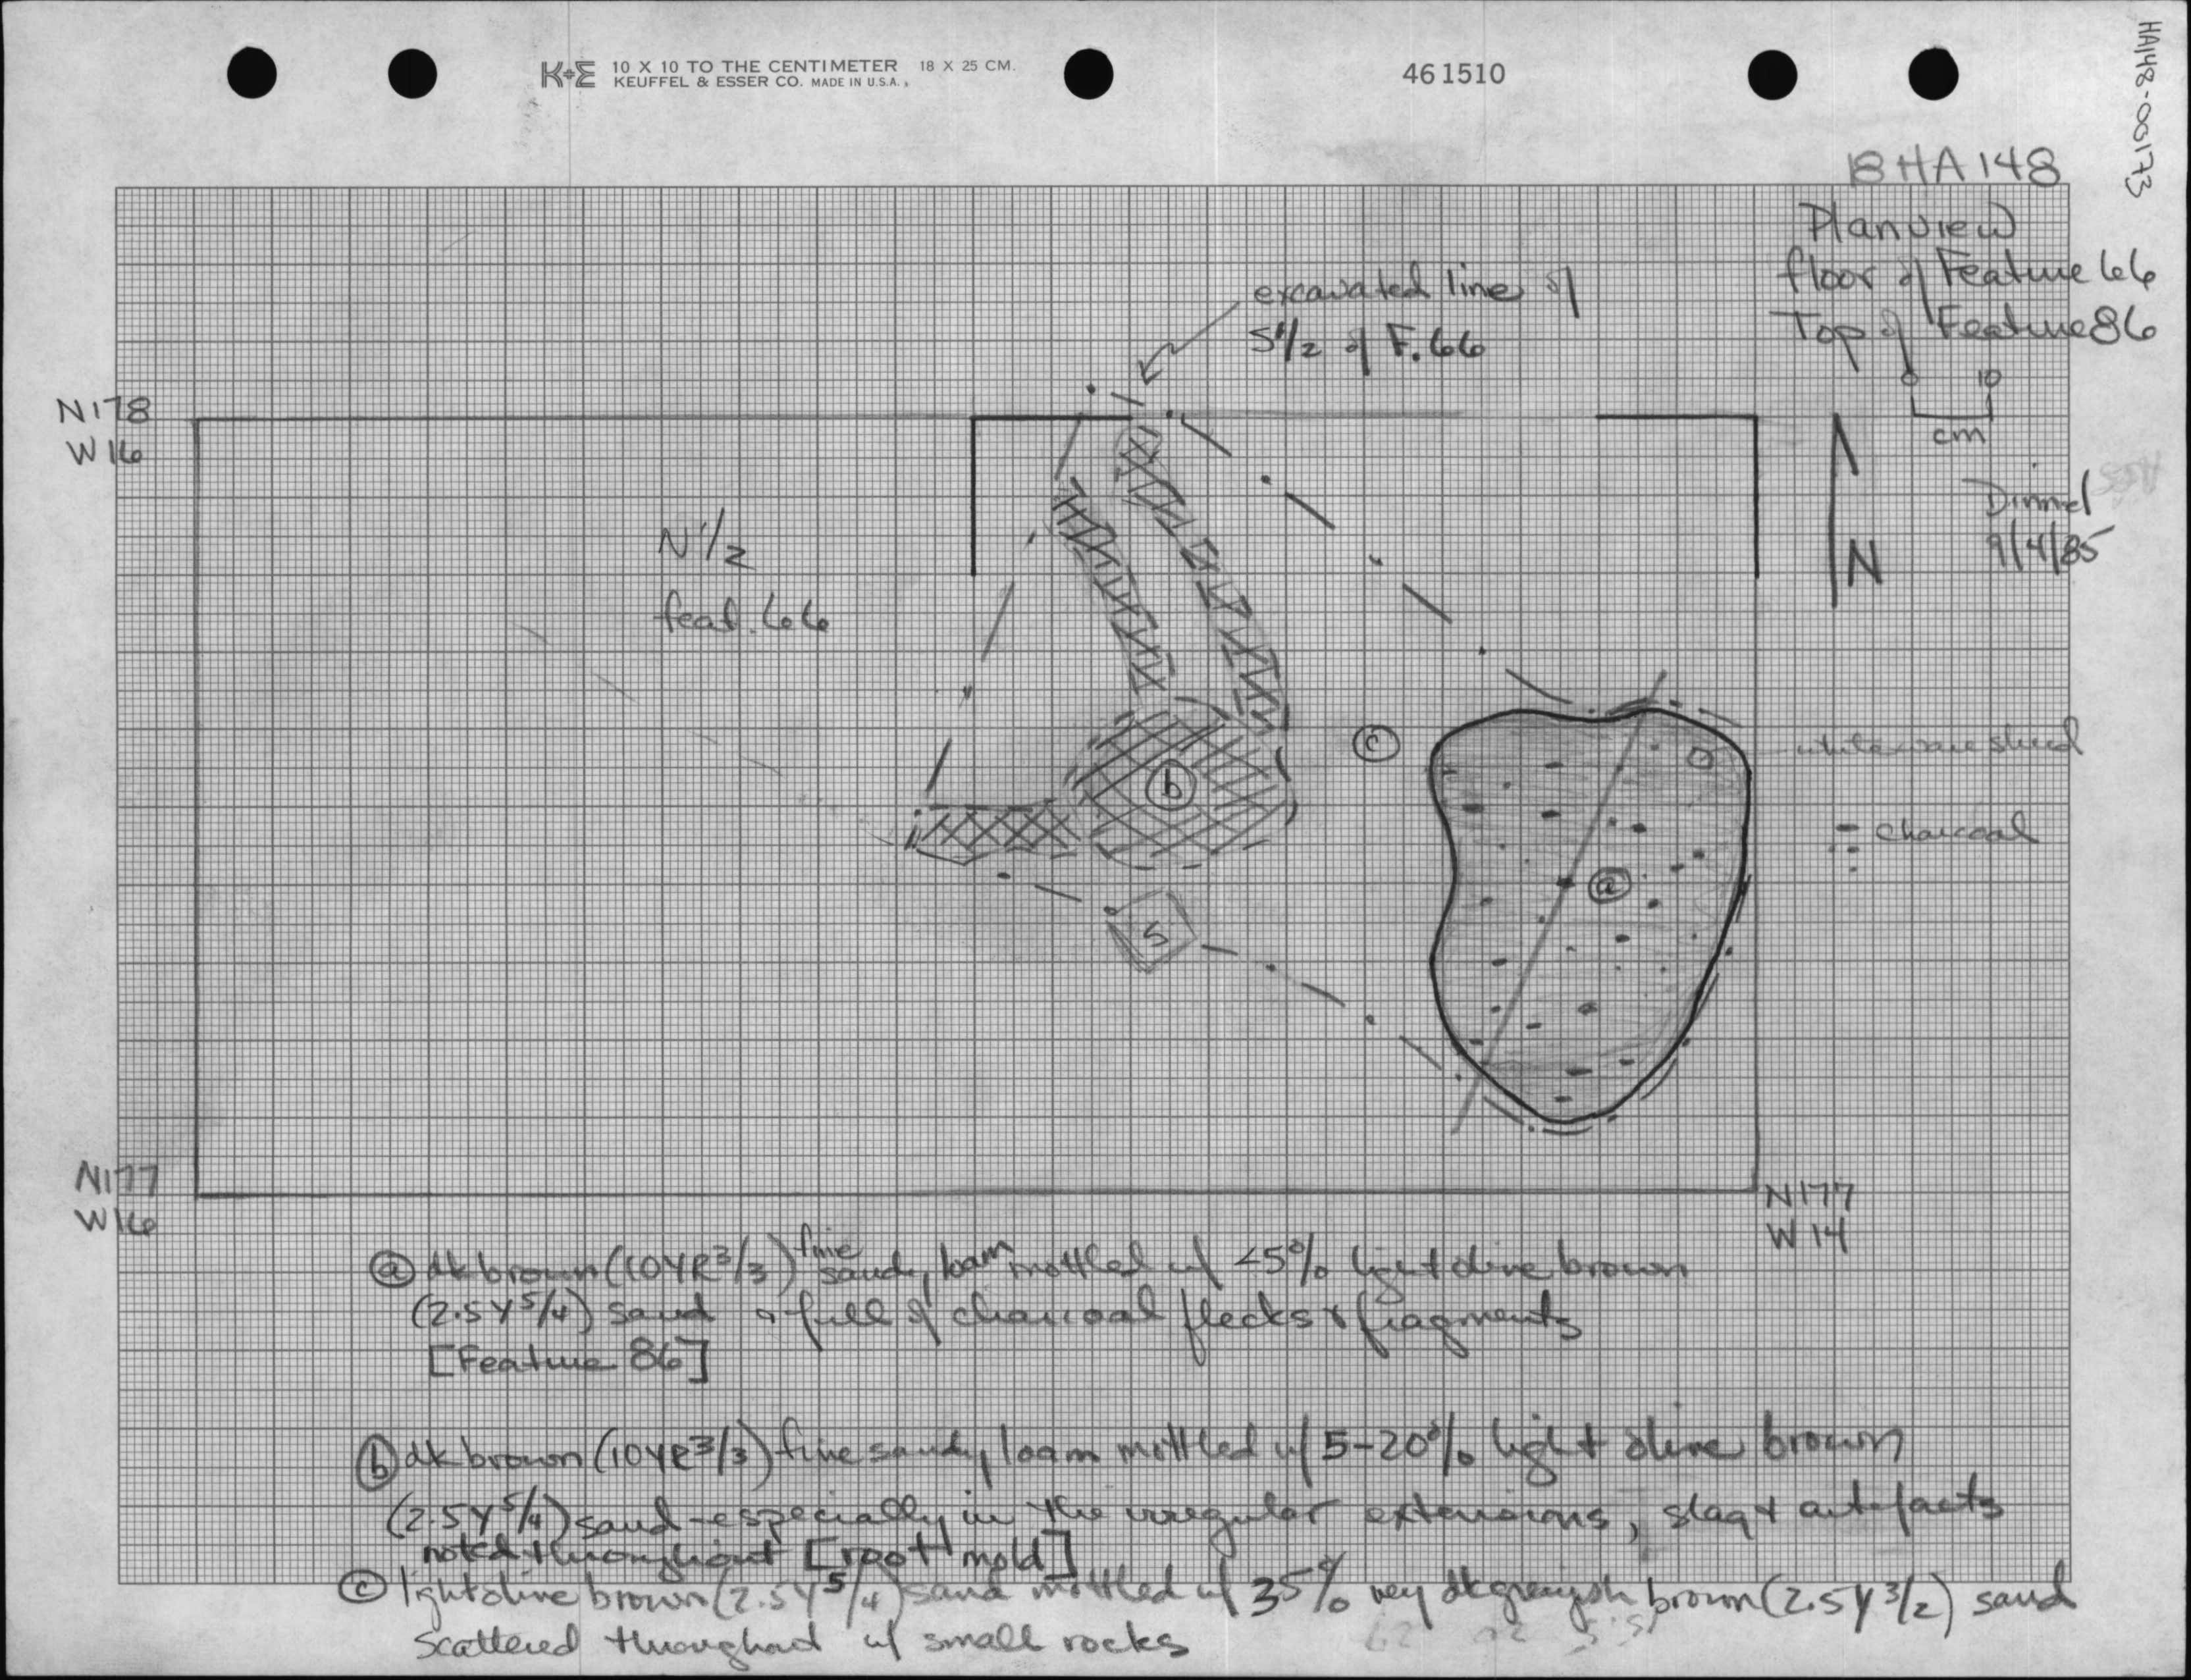 K+E 10 X 10 TO THE CENTIMETER 18 X 25 CM.
KEUFFEL & ESSER CO. MADE IN U.S.A.
461510
HA148-00173
18HA148
Planview
floor of Feature 66
Top of Feature 86
0 10
cm
excavated line of
S1/2 of F. 66
N178
W16
N
Dinnel
9/4/85
N1/2
feat. 66
c
whiteware sherd
b
charcoal
a
S
N177
W16
N177
W14
a dk brown (10YR 3/3) fine sandy loam mottled w/ <5% light olive brown
(2.5Y 5/4) sand & full of charcoal flecks & fragments
[Feature 86]
b dk brown (10YR 3/3) fine sandy loam mottled w/ 5-20% light olive brown
(2.5Y 5/4) sand - especially in the irregular extensions, slag & artefacts
noted throughout [root mold]
c light olive brown (2.5Y 5/4) sand mottled w/ 35% very dk grayish brown (2.5Y 3/2) sand
scattered throughout w/ small rocks